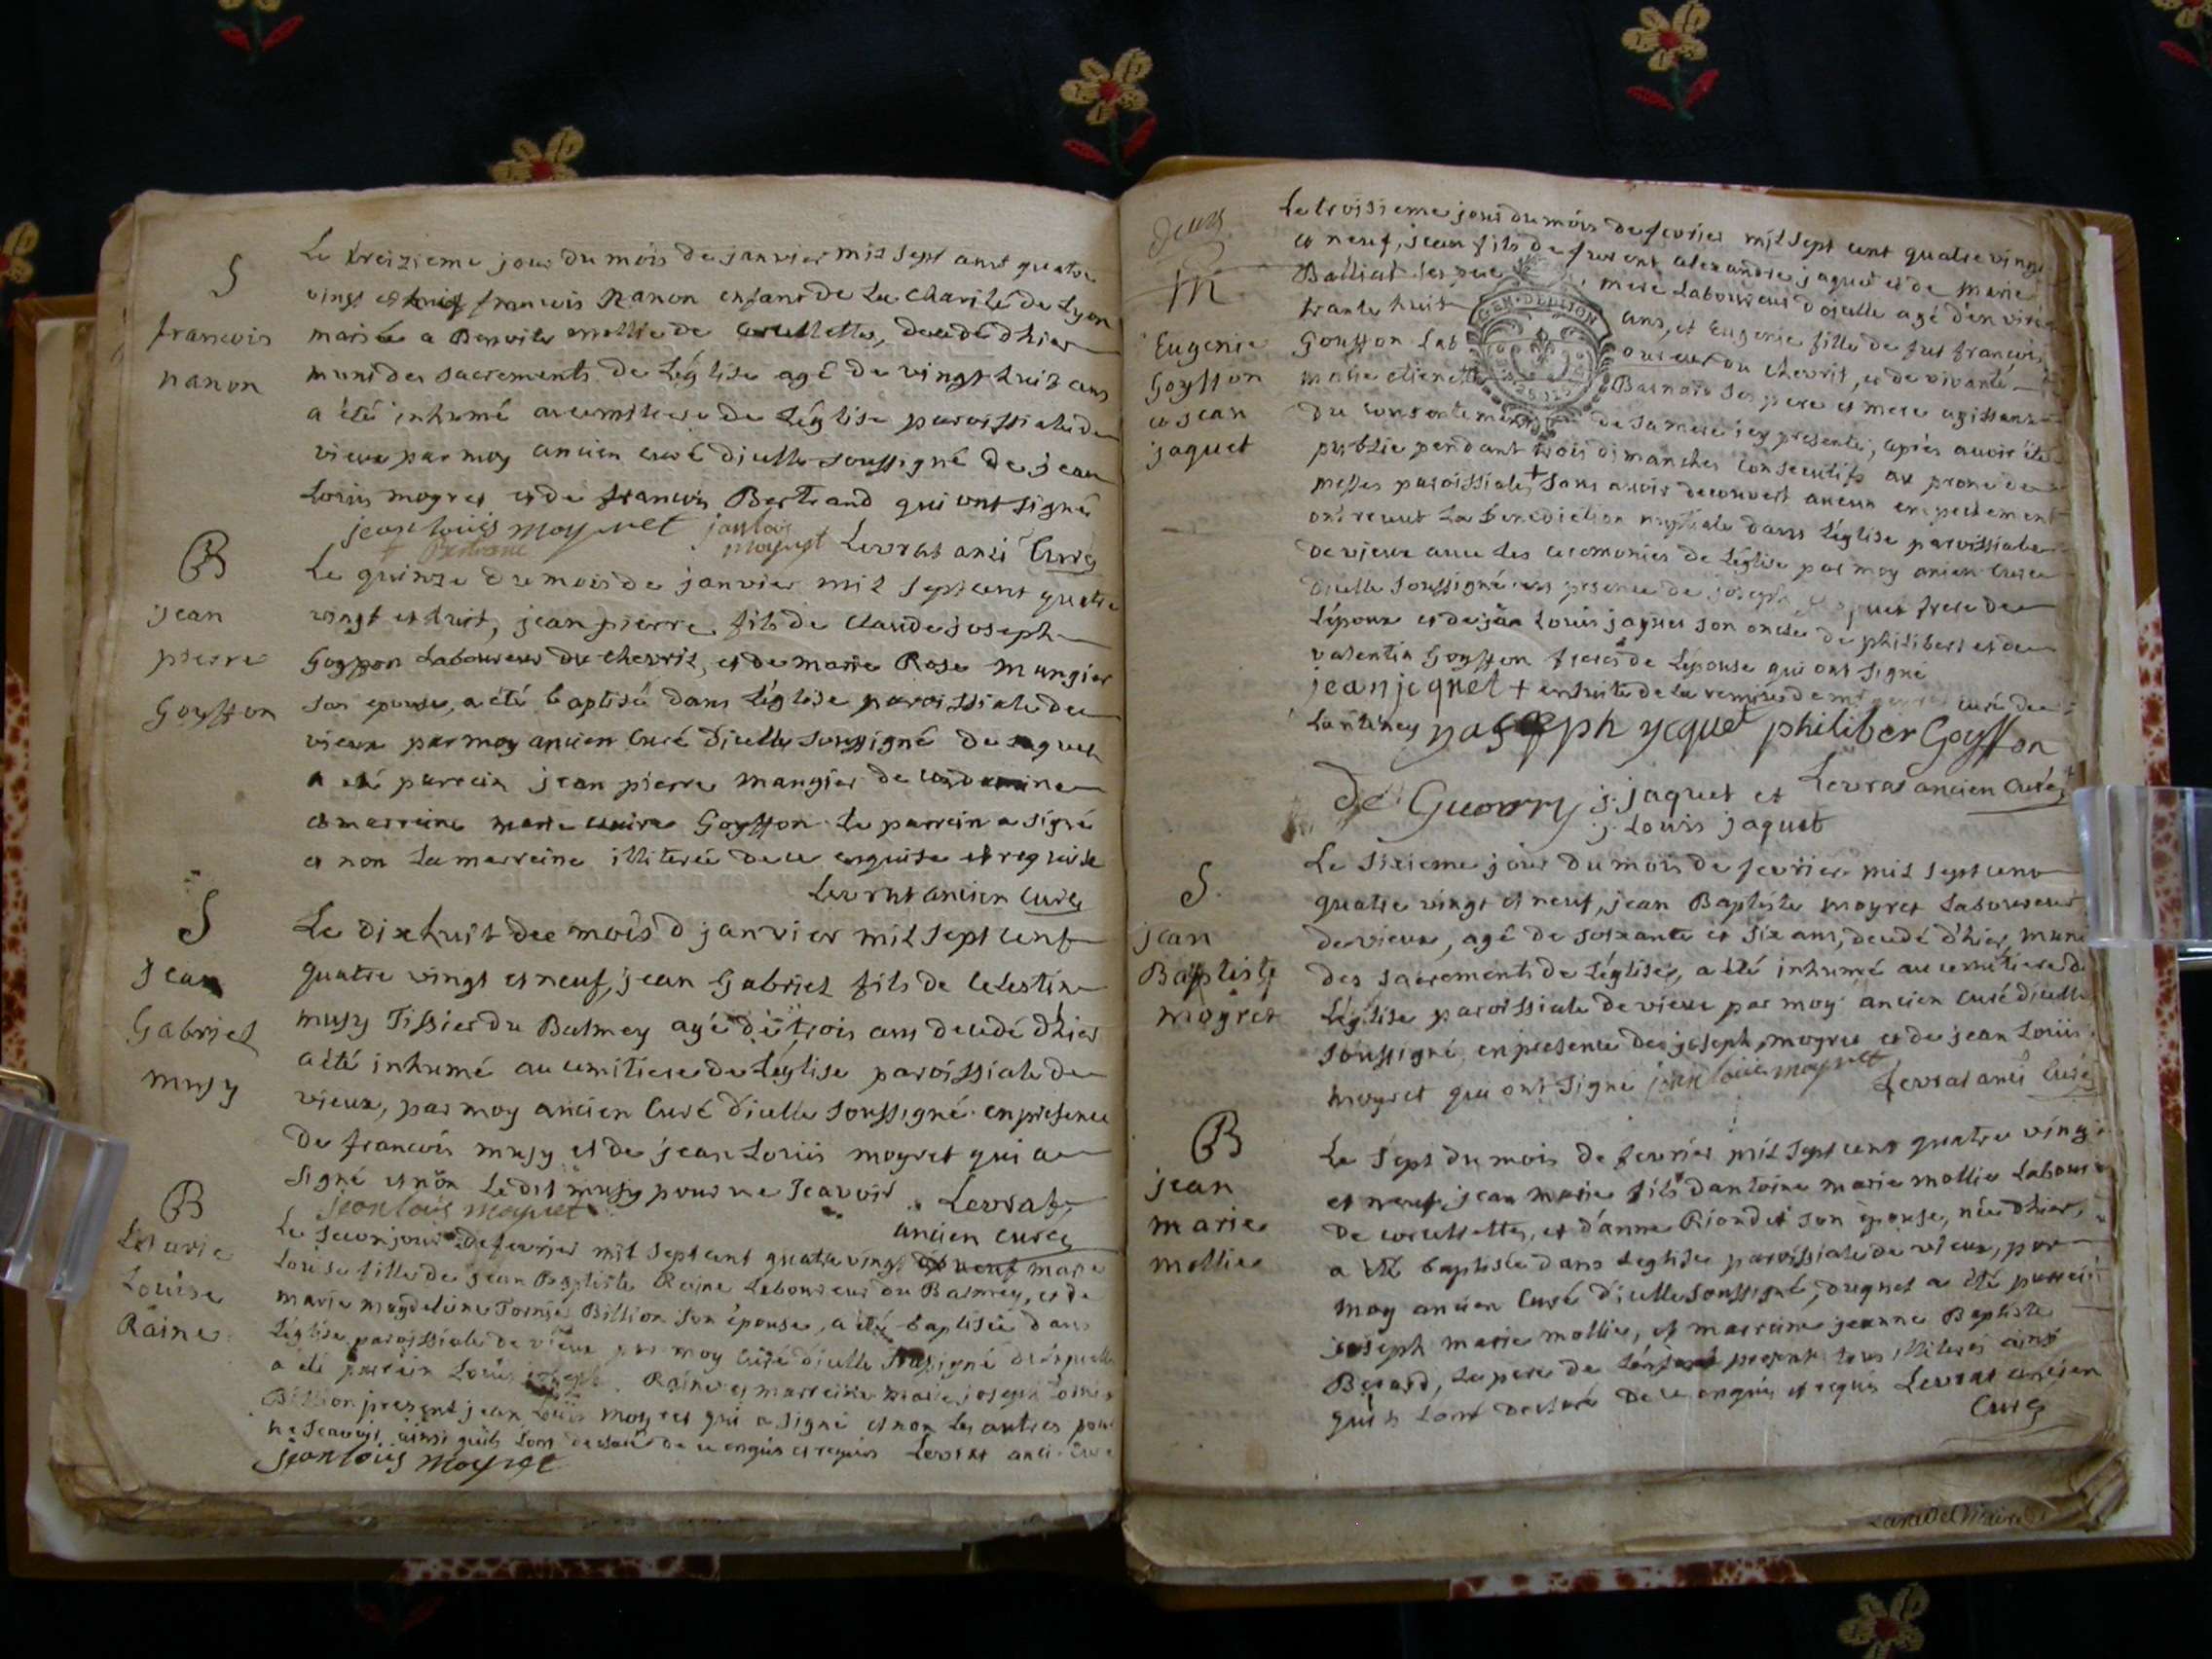 S
francois
nanon
Le treizieme jour du mois de janvier mil sept cent quatre
vingt et francois nanon enfant de La Charité de Lyon
mariée a Benoite mollie de corcellettes, decedé d'hier
muni des sacrements de Léglise agé de vingt huit ans
a été inhumé au cemitiere de Léglise paroissiale de
vieux par moy ancien curé dicelle soussigné de jean
Louis moyret et de francois Bertrand qui ont signé
jean louis moyret Levrat anci Curé
B
jean
pierre
Goyffon
Le quinze du mois de janvier mil sept cent quatre
vingt et huit, jean pierre fils de Claude joseph
Goyffon Laboureur du chevril, et de marie Rose mangier
son epouse, a été baptisé dans Léglise paroissiale de
vieux par moy ancien Curé dicelle soussigné duquel
a été parrein jean pierre mangier de
et marreine marie Goyffon Le parrein a signé
et non La marreine illiterée de ce enquise et requise
Levrat ancien Curé
S
jean
Gabriel
musy
Le dix huit de mois d janvier mil sept cent
quatre vingt et neuf, jean Gabriel fils de Celestin
musy Tissier du Balmey agé de trois ans decedé d'hier
a été inhumé au cemitiere de Léglise paroissiale de
vieux, par moy ancien Curé dicelle soussigné en presence
de francois musy et de jean Louis moyret qui a
signé et non Ledit musy pour ne sçavoir Levrat
jean louis moyret ancien curé
B
Marie
Louise
Raine
Le secon jour de fevrier mil sept cent quatre vingt et neuf marie
Louise fille de jean Baptiste Raine Laboureur du Balmey, et de
marie magdeleine Tornier Billion son épouse, a été baptisée dans
Léglise paroissiale de vieux par moy Curé dicelle soussigné de laquelle
a été parrein Louis joseph Raine et marreine marie joseph Tornier
Billion present jean Louis moyret qui a signé et non Les autres pour
ne sçavoir ainsi quils Lont declaré de ce enquis et requis Levrat anci. Curé
jean louis moyret
deux
M
Eugenie
Goyffon
et jean
jaquet
Le troisieme jour du mois de fevrier mil sept cent quatre vingt
et neuf, jean fils de furent alexandre jaquet et de marie
Balliat ses pere mere Laboureur dicelle agé d'environ
trante huit ans, et Eugenie fille de fut francois
GEN DE DIJON
Goyffon Laboureur du chevril, et de vivante
marie etienette Barnard ses pere et mere agissant
du consentement de sa mere icy presente, après avoir été
publie pendant trois dimanches consecutifs au prone de
messes paroissiales + sans avoir decouvert aucun empechement
ont recut La benediction nuptiale dans Léglise paroissiale
de vieux avec les ceremonies de Léglise par moy ancien Curé
dicelle soussigné en presence de joseph jaquet frere de
Lépoux et de jean Louis jaquet son oncle de philibert et de
valentin Goyffon freres de Lépouse qui ont signé
jean jequet + ensuite de La remise de mr curé de
Lantenay yaseph yequet philiber Goyffon
j. jaquet et Levrat ancien Curé
j. Louis jaquet
S
jean
Baptiste
moyret
Le sixieme jour du mois de fevrier mil sept cent
quatre vingt et neuf, jean Baptiste moyret Laboureur
de vieux, agé de soixante et six ans, decedé d'hier, muni
des sacrements de Léglise, a été inhumé au cemitiere de
Léglise paroissiale de vieux par moy ancien Curé dicelle
soussigné, en presence de joseph moyret et de jean Louis
moyret qui ont signé jean louis moyret Levrat anci Curé
B
jean
marie
mollie
Le sept du mois de fevrier mil sept cent quatre vingt
et neuf, jean marie fils dantoine marie mollie Labour
de corcellettes, et d'anne Riondet son épouse, née d'hier,
a été baptisée dans Leglise paroissiale de vieux, par
moy ancien Curé dicelle soussigné, duquel a été parrein
joseph marie mollie, et marreine jeanne Baptiste
Berard, Le pere de Lenfant present tous illiterés ainsi
quils Lont declaré de ce enquis et requis Levrat ancien
Curé